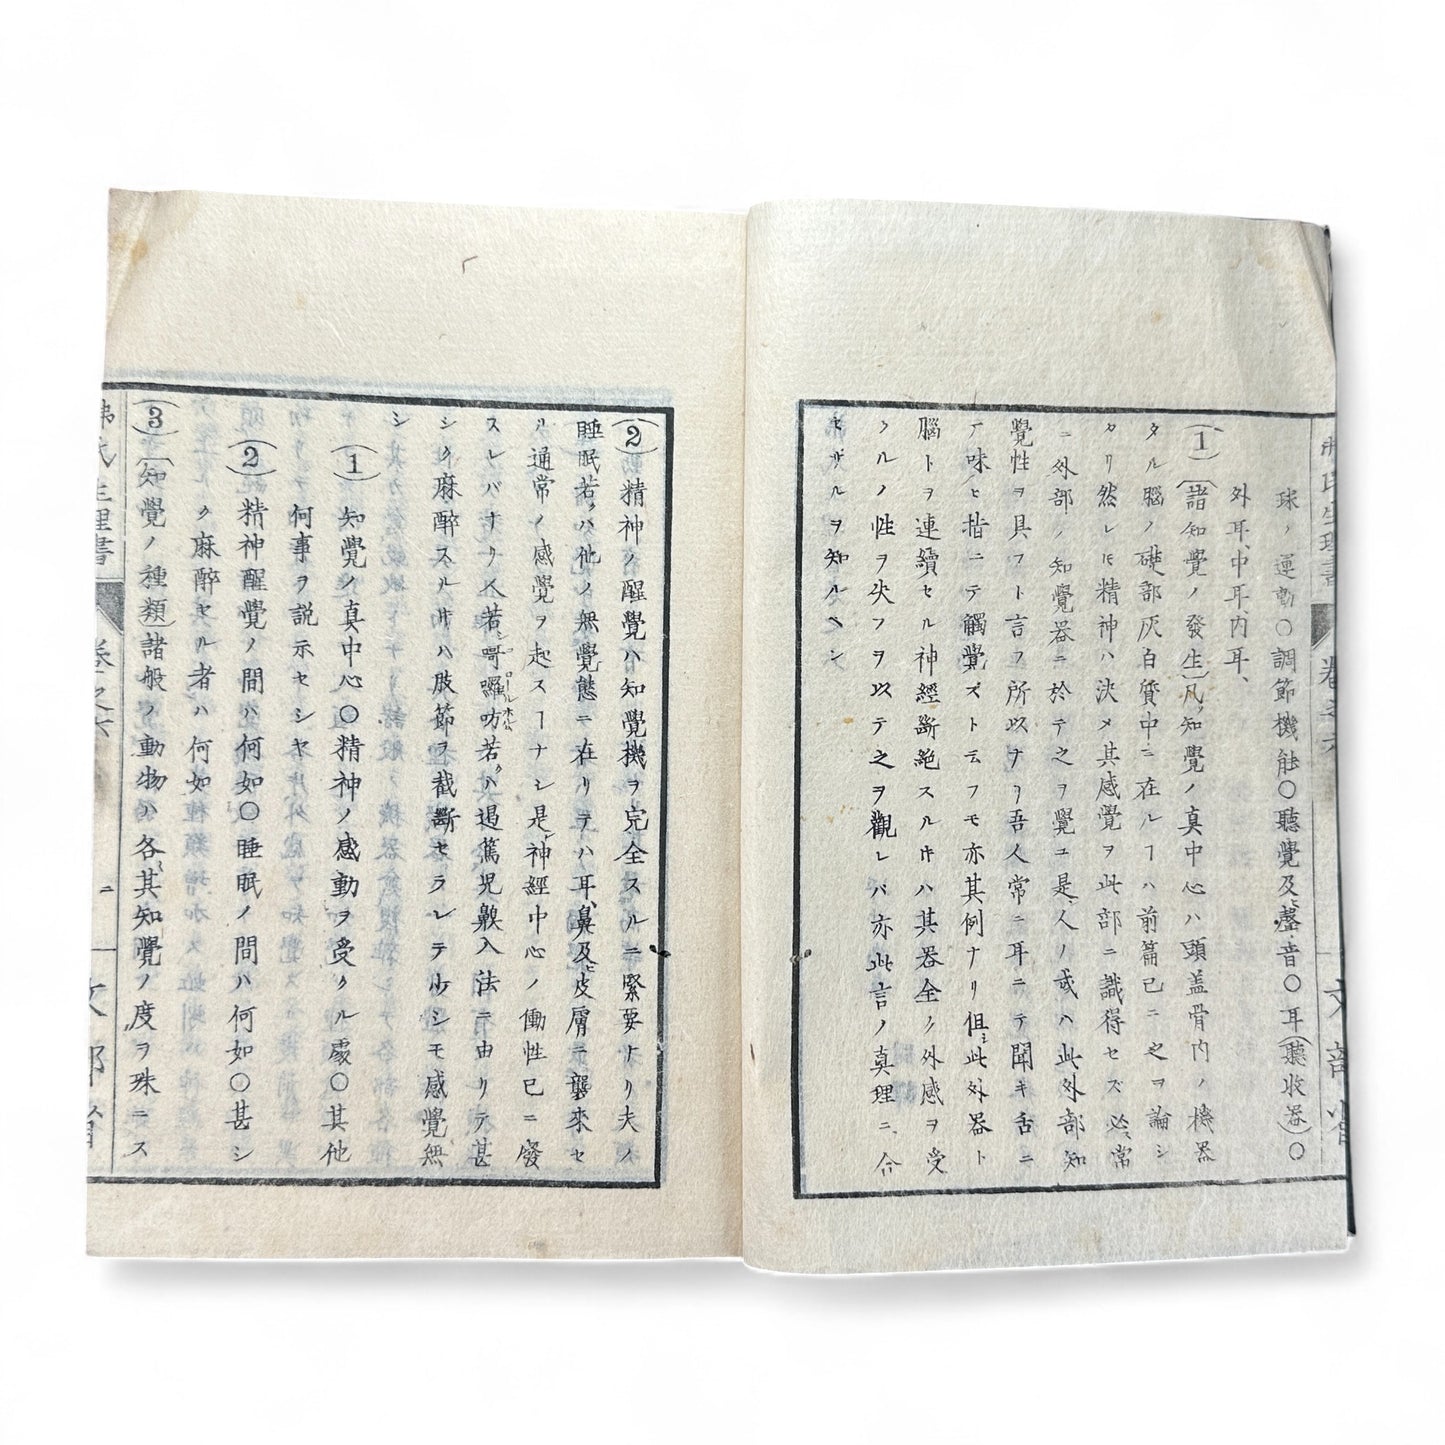 球ノ運動〇調節機能〇聽覺及ヒ聲音〇耳(聽收器)〇
外耳、中耳、內耳、
(1)(諸知覺ノ發生)凡ソ知覺ノ真中心ハ頭盖骨内ノ機器
タル腦ノ礎部灰白質中ニ在ルヿハ前篇已ニ之ヲ論シ
タリ然レ𪜈精神ハ決メ其感覺ヲ此部ニ識得セズ必ス常
ニ外部ノ知覺器ニ於テ之ヲ覺ユ是レ人ノ或ハ此外部知
覺性ヲ具フト言フ所以ナリ吾人常ニ耳ニテ聞キ舌ニ
テ味ヒ指ニテ觸覺ズト云フモ亦其例ナリ但シ此外器ト
腦トヲ連續セル神經斷絕スル𪜈ハ其器全ク外感ヲ受
クルノ性ヲ失フヲ以テ之ヲ觀レバ亦此言ノ真理ニ合
セザルヲ知ルベシ
(2)精神ノ醒覺ハ知覺機ヲ完全スルニ緊要ナリ夫ノ
睡眠若クハ他ノ無覺態ニ在リテハ耳、鼻及ヒ皮膚ニ襲來セ
ル通常ノ感覺ヲ起スヿナシ是レ神經中心ノ働性已ニ廢
スレバナリ人若シ哥囉昉若クハ遏篤兒歕入法ニ由リテ甚
シク麻醉スル𪜈ハ肢節ヲ截斷セラレテ少シモ感覺無
シ
(1)知覺ノ真中心〇精神ノ感動ヲ受クル處〇其他
何事ヲ説示セシヤ
(2)精神醒覺ノ間ハ何如〇睡眠ノ間ハ何如〇甚シ
ク麻醉セル者ハ何如
(3)(知覺ノ種類)諸般ノ動物ハ各其知覺ノ度ヲ殊ニス
弗氏生理書 卷之六 二 文部省